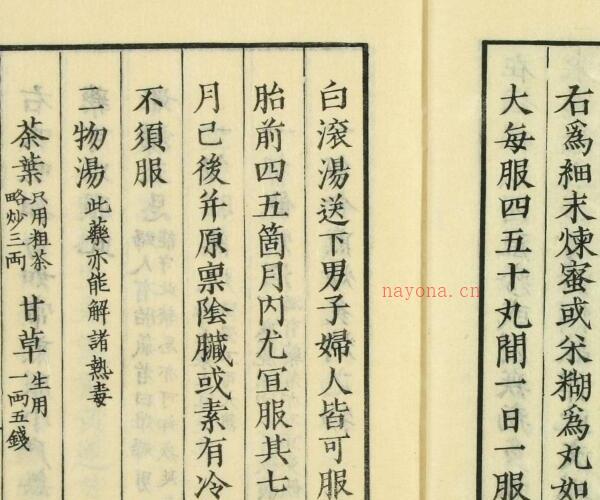 右爲細末煉蜜或米糊爲丸如
大每服四五十丸間一日一服
白滾湯送下男子婦人皆可服
胎前四五箇月內尤宜服其七
月已後并原禀陰臟或素有冷
不須服
二物湯此藥亦能解諸熱毒
茶葉只用粗茶略炒三両 甘草生用一両五錢
nayona.cn